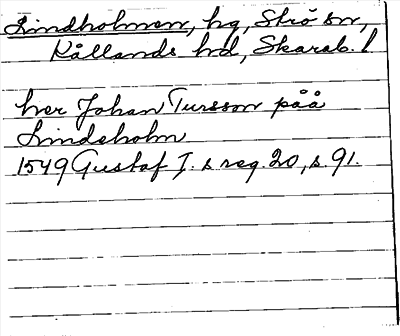 Lindholmen, hg, Strö sn,
Kållands hd, Skarab. l
her Johan Tursson påå
Lindeholm
1549 Gustaf I. s reg. 20, s. 91.